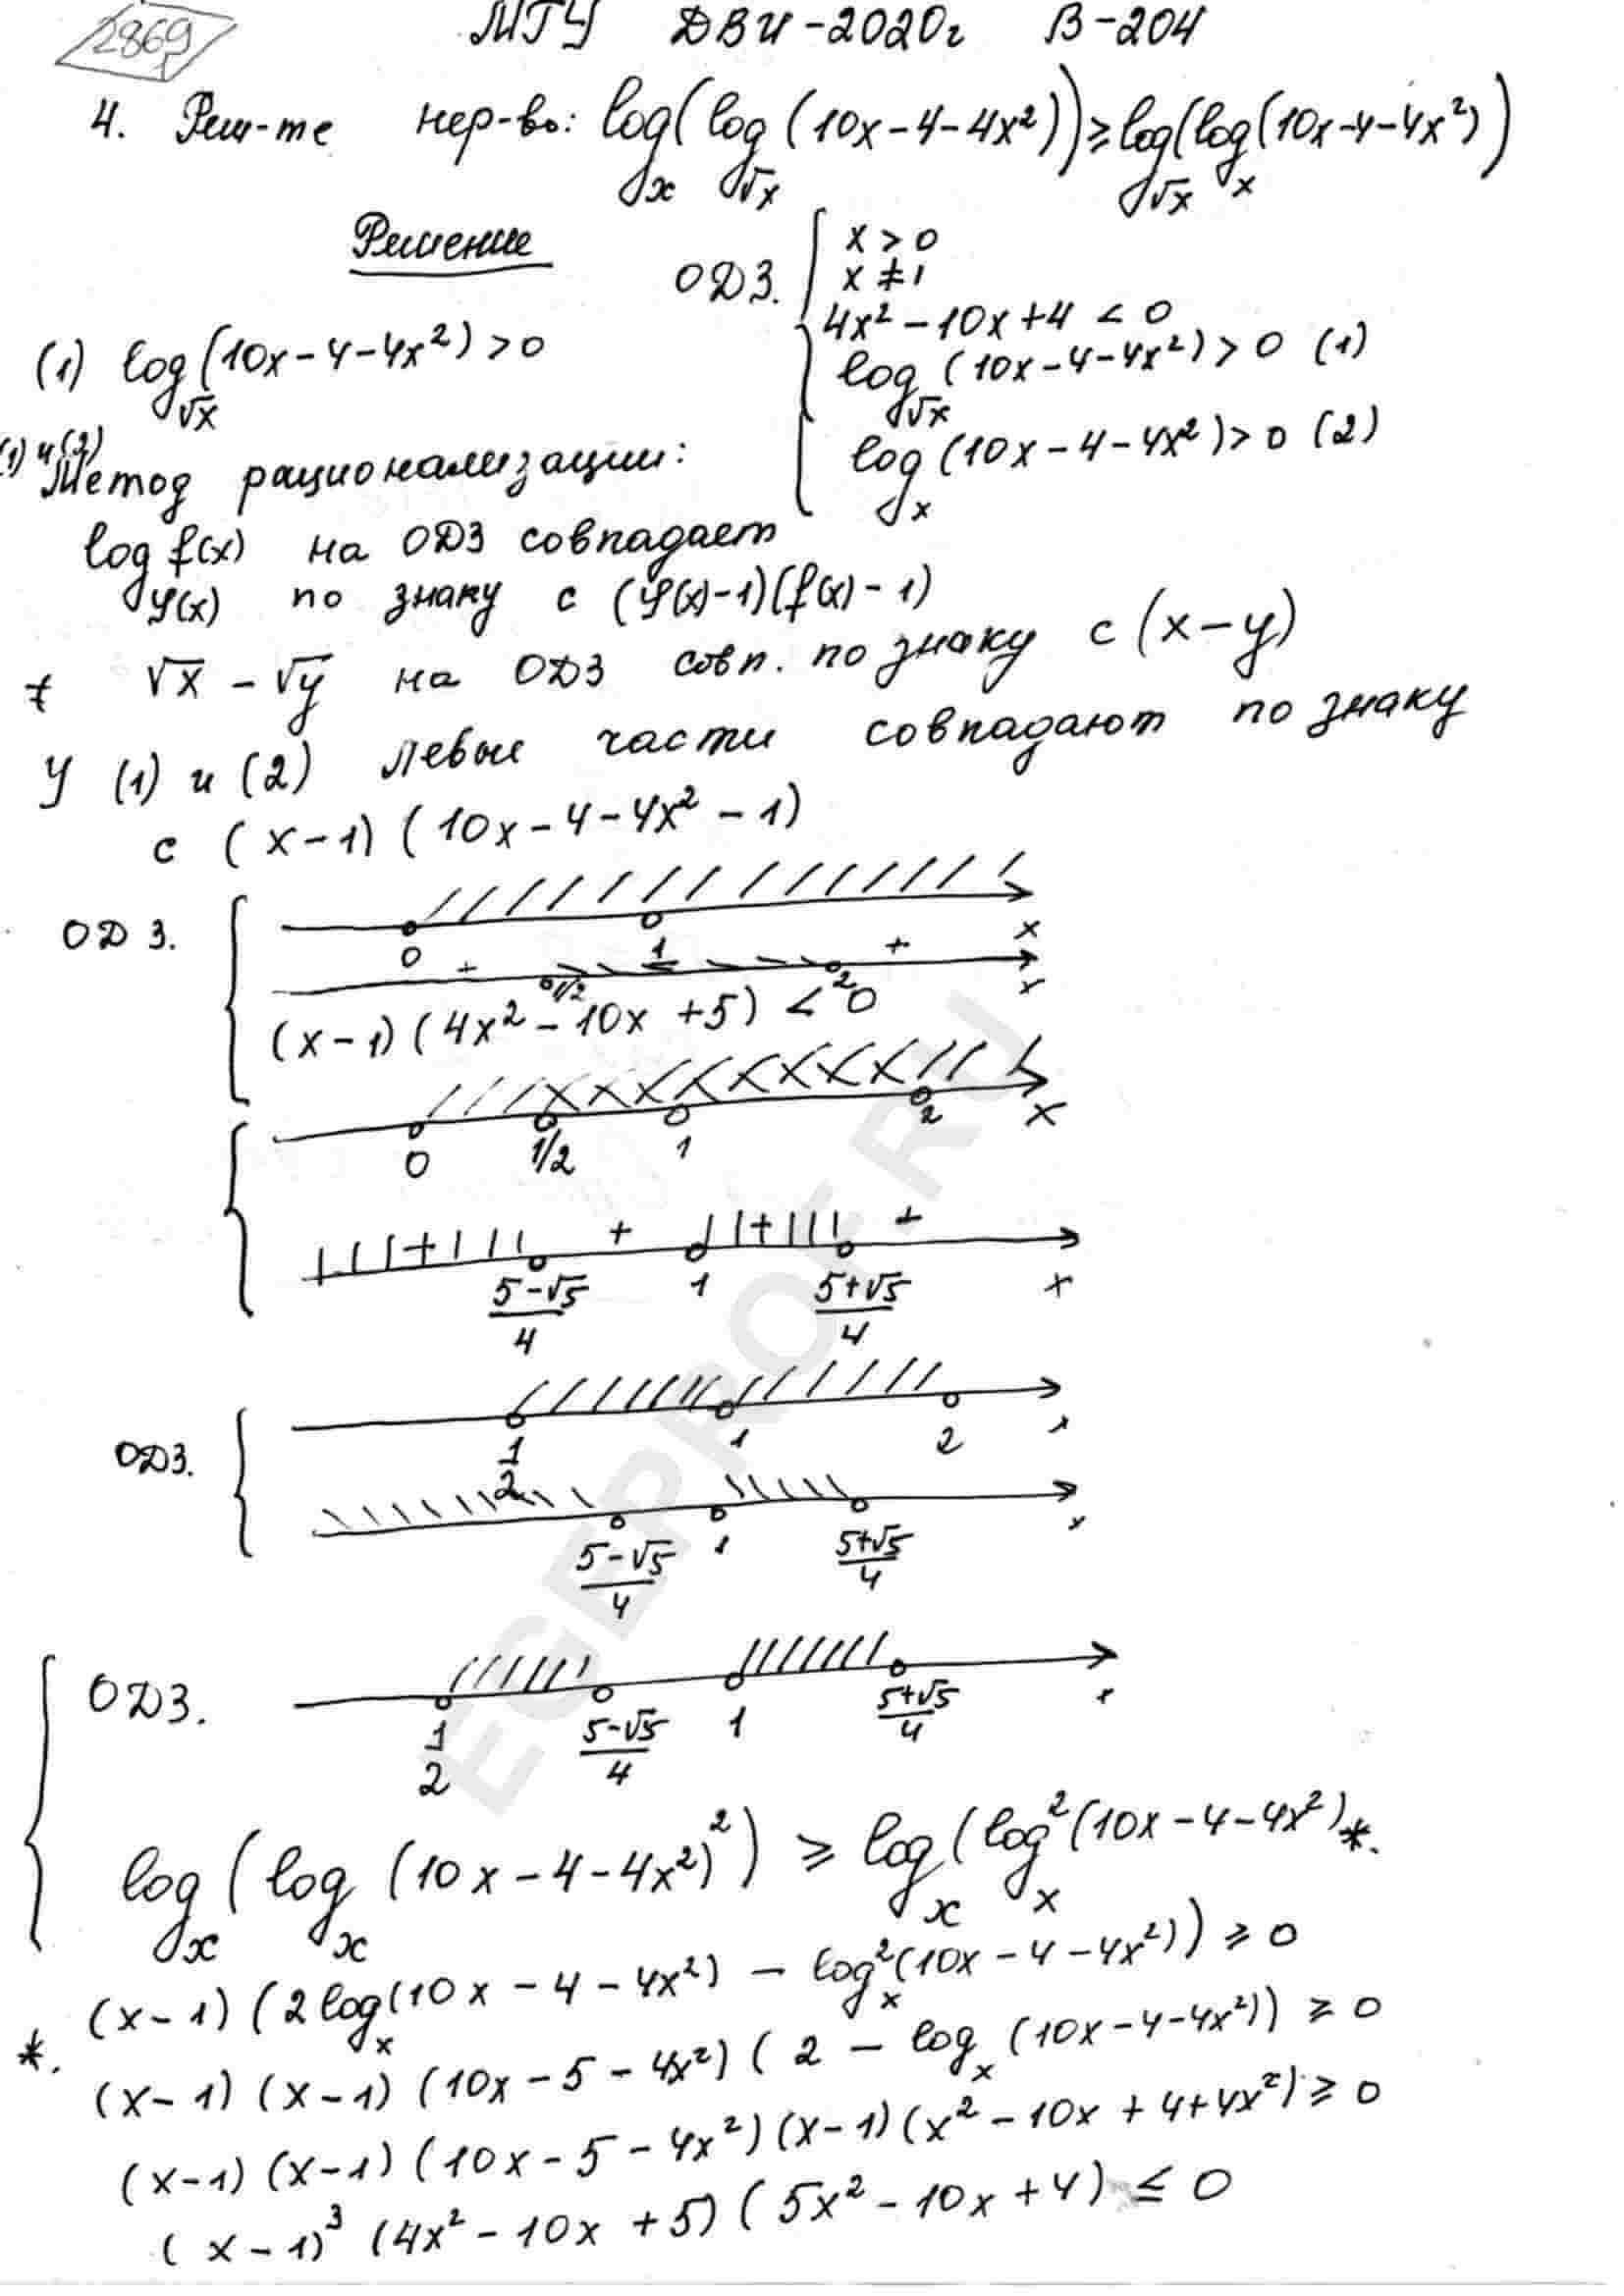 2869
МГУ ДВИ-2020г В-204
4. Реш-те нер-во: log_x(log_√x(10x-4-4x²)) ≥ log_√x(log_x(10x-4-4x²))
Решение
ОДЗ. { x > 0
x ≠ 1
4x² - 10x + 4 < 0
log_√x(10x-4-4x²) > 0 (1)
log_x(10x-4-4x²) > 0 (2)
(1) log_√x(10x-4-4x²) > 0
(1) и (2)
Метод рационализации:
log_φ(x) f(x) на ОДЗ совпадает
по знаку с (φ(x)-1)(f(x)-1)
√x - √y на ОДЗ совп. по знаку с (x-y)
У (1) и (2) левые части совпадают по знаку
с (x-1)(10x-4-4x²-1)
ОДЗ. {
0 1 x
+ 1/2 1 2 + x
(x-1)(4x²-10x+5) < 0
0 1/2 1 2 x
+ + + +
(5-√5)/4 1 (5+√5)/4 x
ОДЗ. {
1/2 1 2 x
(5-√5)/4 1 (5+√5)/4 x
{ ОДЗ.
1/2 (5-√5)/4 1 (5+√5)/4 x
log_x(log_x(10x-4-4x²)²) ≥ log_x(log_x²(10x-4-4x²) *.
*. (x-1)(2log_x(10x-4-4x²) - log_x²(10x-4-4x²)) ≥ 0
(x-1)(x-1)(10x-5-4x²)(2 - log_x(10x-4-4x²)) ≥ 0
(x-1)(x-1)(10x-5-4x²)(x-1)(x²-10x+4+4x²) ≥ 0
(x-1)³(4x²-10x+5)(5x²-10x+4) ≤ 0
EGEPROF.RU